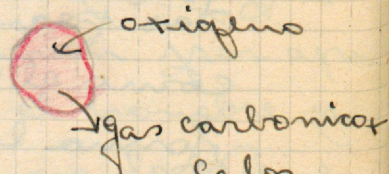 oxigeno
gas carbonico